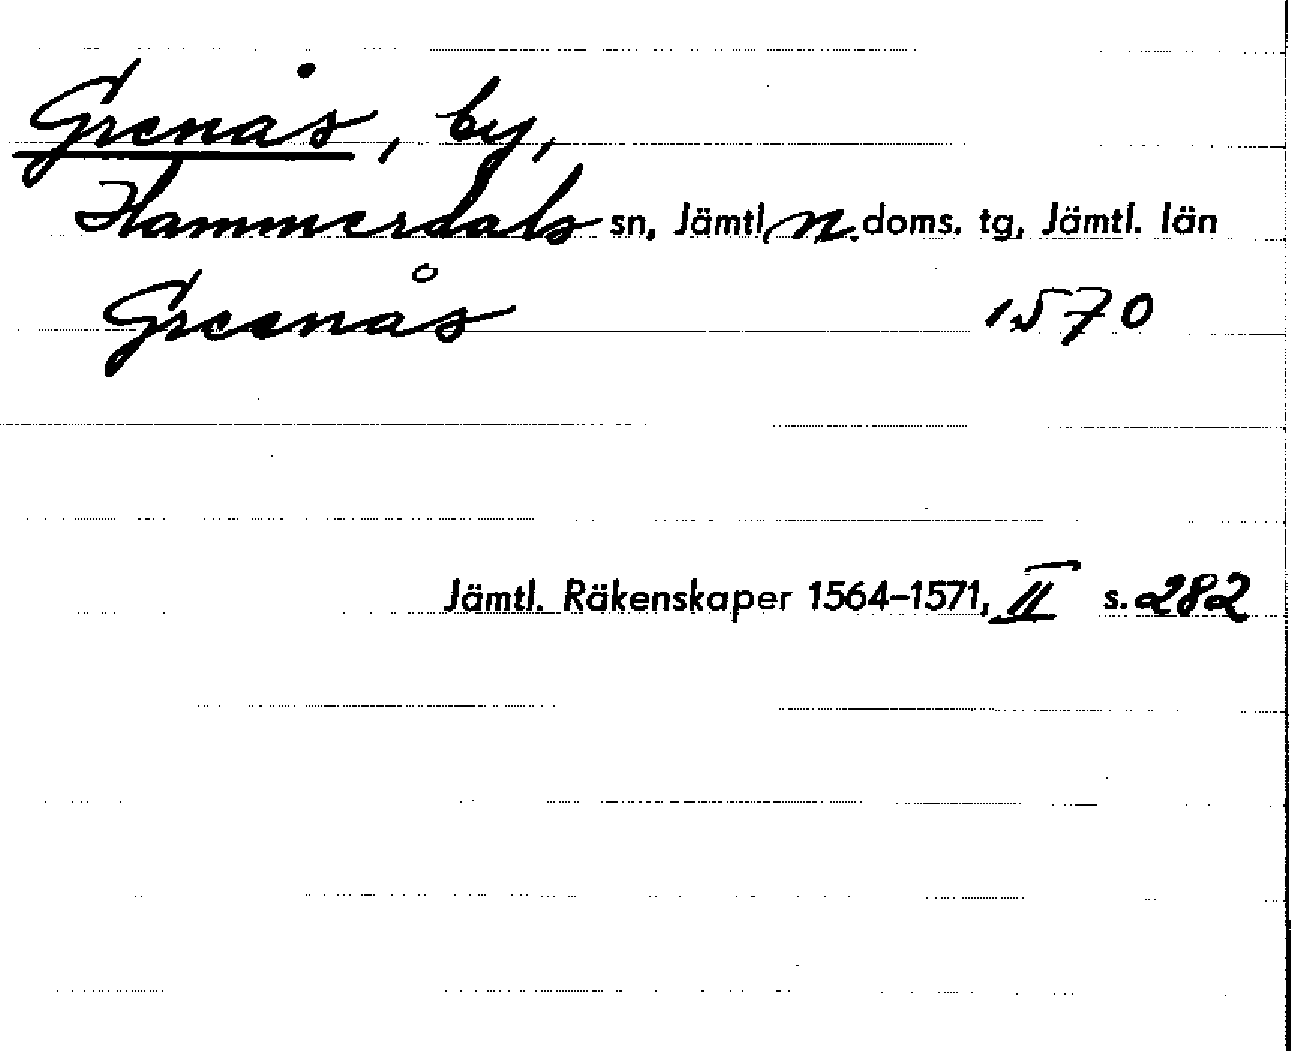 Grenås, by,
Hammerdals sn, Jämtl. n. doms. tg, Jämtl. län
Greenås 1570
Jämtl. Räkenskaper 1564–1571, II s. 282